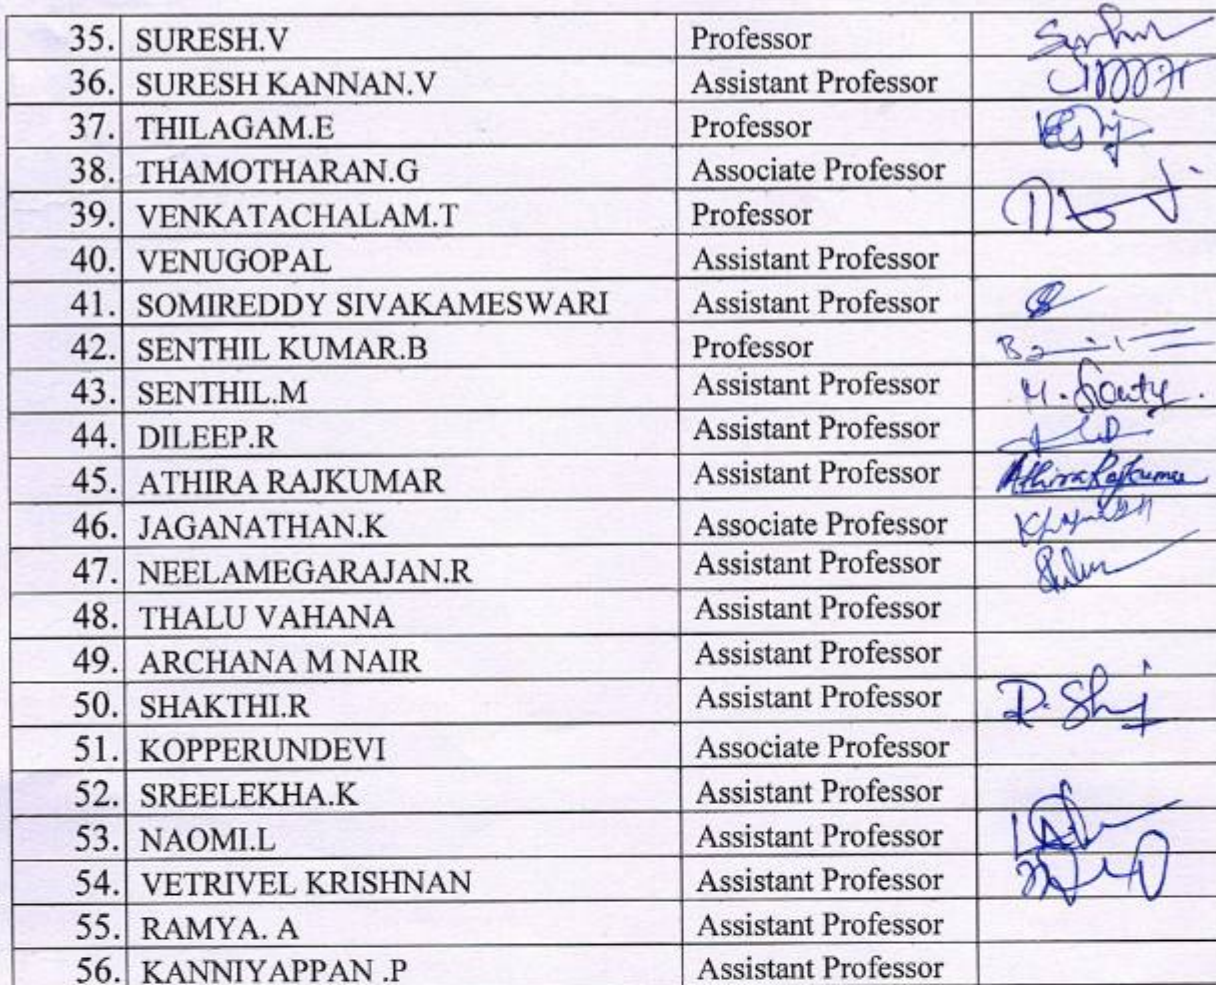 35. SURESH.V Professor
36. SURESH KANNAN.V Assistant Professor
37. THILAGAM.E Professor
38. THAMOTHARAN.G Associate Professor
39. VENKATACHALAM.T Professor
40. VENUGOPAL Assistant Professor
41. SOMIREDDY SIVAKAMESWARI Assistant Professor
42. SENTHIL KUMAR.B Professor
43. SENTHIL.M Assistant Professor
44. DILEEP.R Assistant Professor
45. ATHIRA RAJKUMAR Assistant Professor Athira Rajkumar
46. JAGANATHAN.K Associate Professor
47. NEELAMEGARAJAN.R Assistant Professor
48. THALU VAHANA Assistant Professor
49. ARCHANA M NAIR Assistant Professor
50. SHAKTHI.R Assistant Professor
51. KOPPERUNDEVI Associate Professor
52. SREELEKHA.K Assistant Professor
53. NAOMI.L Assistant Professor
54. VETRIVEL KRISHNAN Assistant Professor
55. RAMYA. A Assistant Professor
56. KANNIYAPPAN .P Assistant Professor